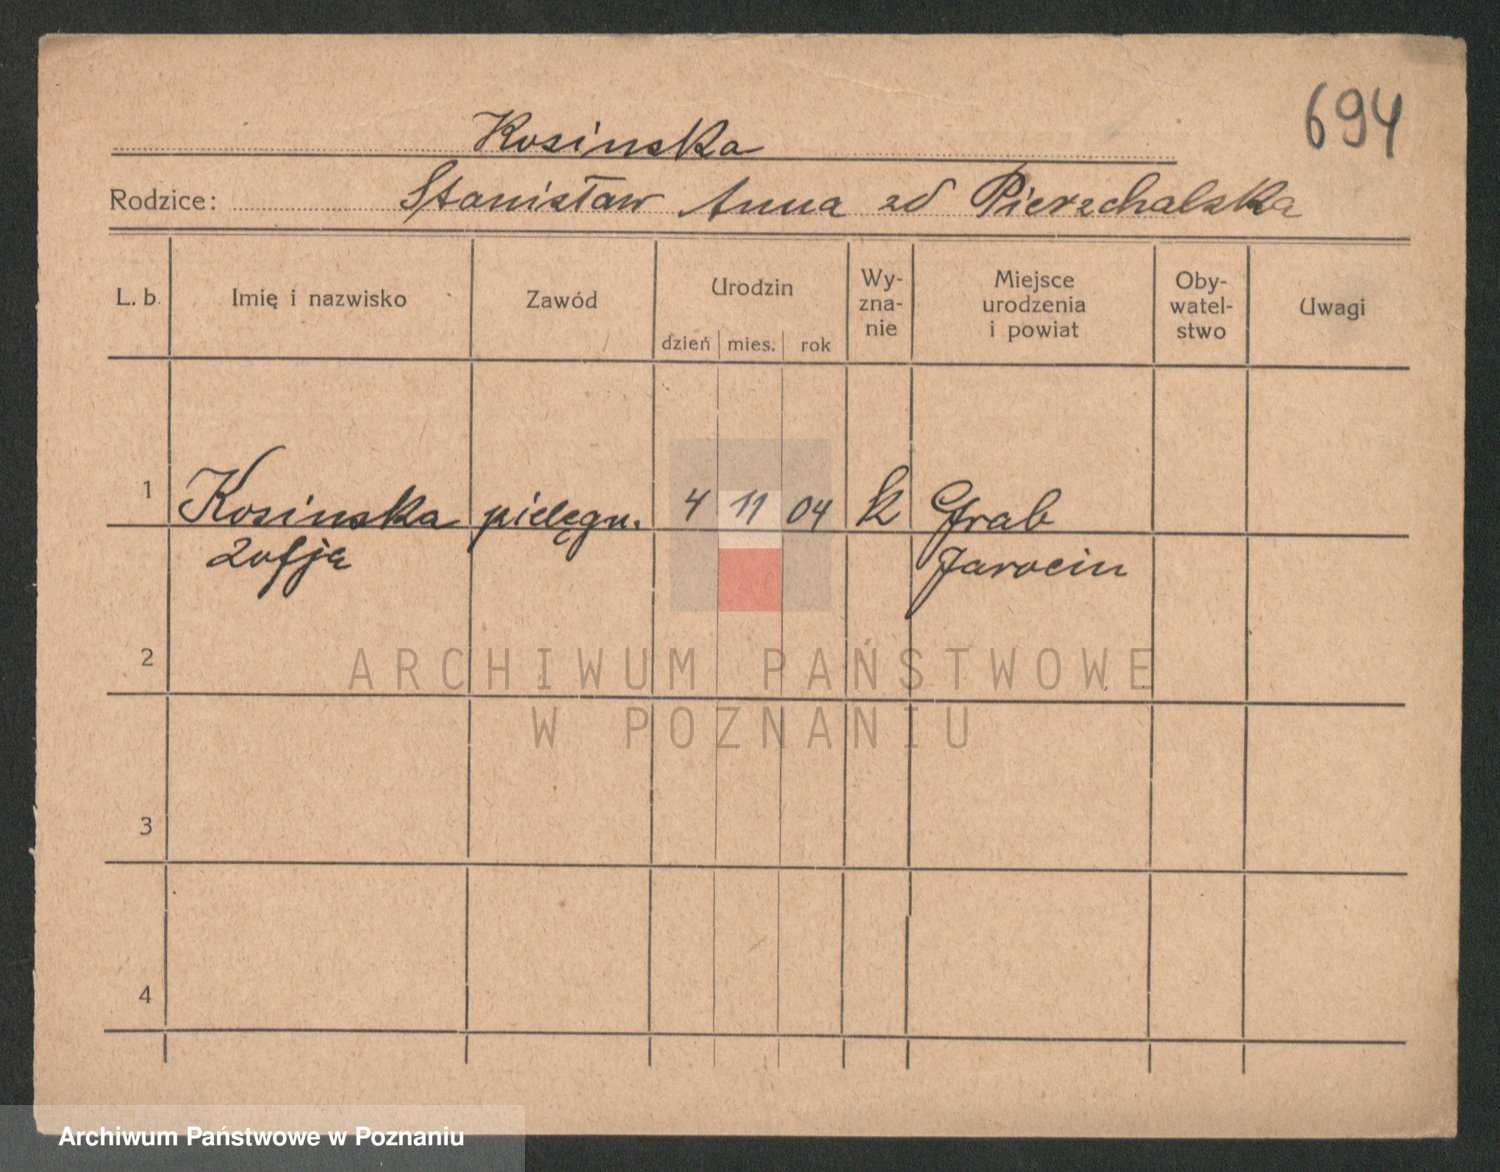 694
Kosinska
Rodzice: Stanisław Anna zd Pierzchalska
L. b. Imię i nazwisko Zawód Urodzin dzień mies. rok Wy-zna-nie Miejsce urodzenia i powiat Oby-watel-stwo Uwagi
1 Kosinska pielęgn. 4 11 04 k Grab
Zofja Jarocin
2
ARCHIWUM PAŃSTWOWE
W POZNANIU
3
4
Archiwum Państwowe w Poznaniu